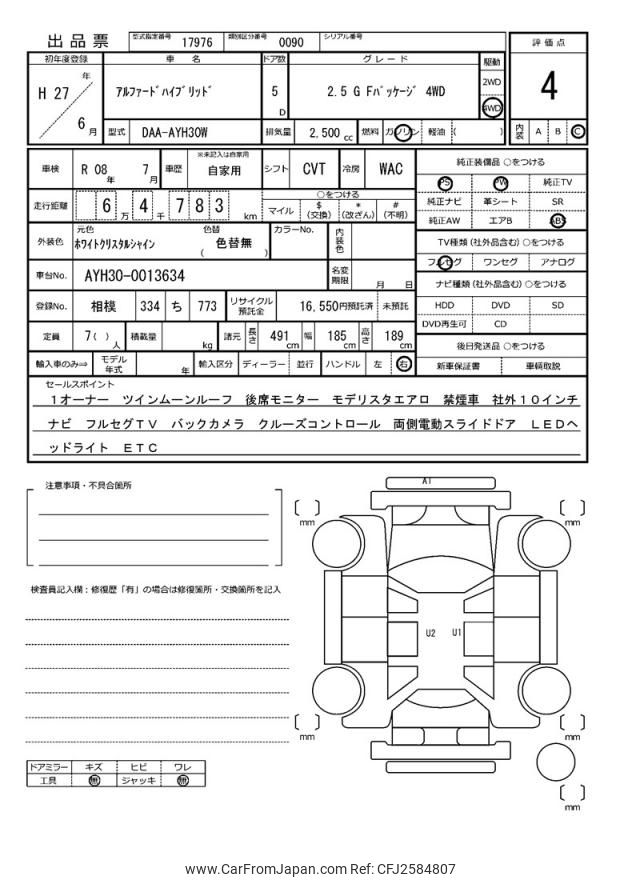 出品票 型式指定番号 17976 類別区分番号 0090 シリアル番号
評価点
初年度登録 車名 ドア数 グレード 駆動
H 27 年 6 月
アルファードハイブリッド 5 D 2.5 G Fパッケージ 4WD
2WD
4WD
4
型式 DAA-AYH30W 排気量 2,500 cc 燃料 ガソリン 軽油 ( )
内装 A B C
車検 R 08 年 7 月 車歴 ※未記入は自家用 自家用 シフト CVT 冷房 WAC
純正装備品 ○をつける
PS PW 純正TV
純正ナビ 革シート SR
純正AW エアB ABS
走行距離 6 4 万 千 7 8 3 km
○をつける
マイル $ (交換) * (改ざん) # (不明)
TV種類 (社外品含む) ○をつける
フルセグ ワンセグ アナログ
外装色 元色 ホワイトクリスタルシャイン 色替 ( 色替無 ) カラーNo. 内装色
ナビ種類 (社外品含む) ○をつける
HDD DVD SD
DVD再生可 CD
車台No. AYH30-0013634 名変期限 月 日
登録No. 相模 334 ち 773 リサイクル預託金 16,550円預託済 未預託
定員 7( ) 人 積載量 kg 諸元 長さ 491 cm 幅 185 cm 高さ 189 cm
後日発送品 ○をつける
新車保証書 車輌取説
輸入車のみ⇒ モデル年式 年 輸入区分 ディーラー 並行 ハンドル 左 右
セールスポイント
1オーナー ツインムーンルーフ 後席モニター モデリスタエアロ 禁煙車 社外10インチ
ナビ フルセグTV バックカメラ クルーズコントロール 両側電動スライドドア LEDヘ
ッドライト ETC
注意事項・不具合箇所
検査員記入欄：修復歴「有」の場合は修復箇所・交換箇所を記入
A1
[ ] mm
[ ] mm
U2 U1
[ ] mm
[ ] mm
[ ] mm
ドアミラー キズ ヒビ ワレ
工具 無 ジャッキ 無
www.CarFromJapan.com Ref: CFJ2584807